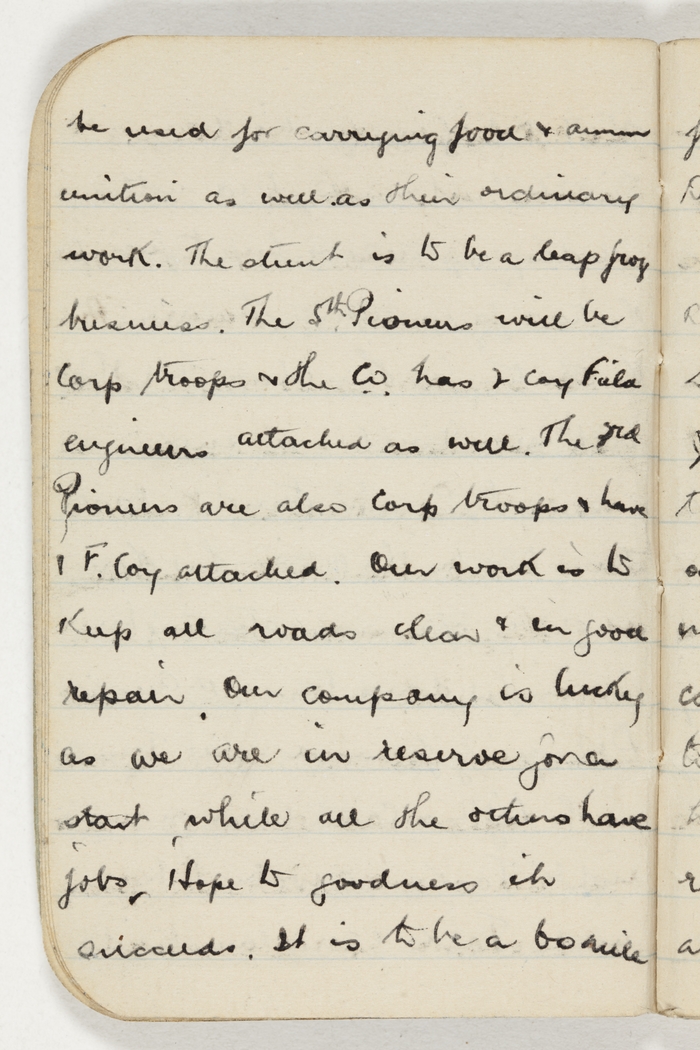 be used for carrying food & amm
unition as well as their ordinary
work. The stunt is to be a leap frog
business. The 5th Pioneers will be
Corp troops & the Co. has 2 Coy Field
engineers attached as well. The 3rd
Pioneers are also Corp troops & have
1 F. Coy attached. Our work is to
Keep all roads clear & in good
repair. Our company is lucky
as we are in reserve for a
start, while all the others have
jobs. Hope to goodness it
succeeds. It is to be a mile